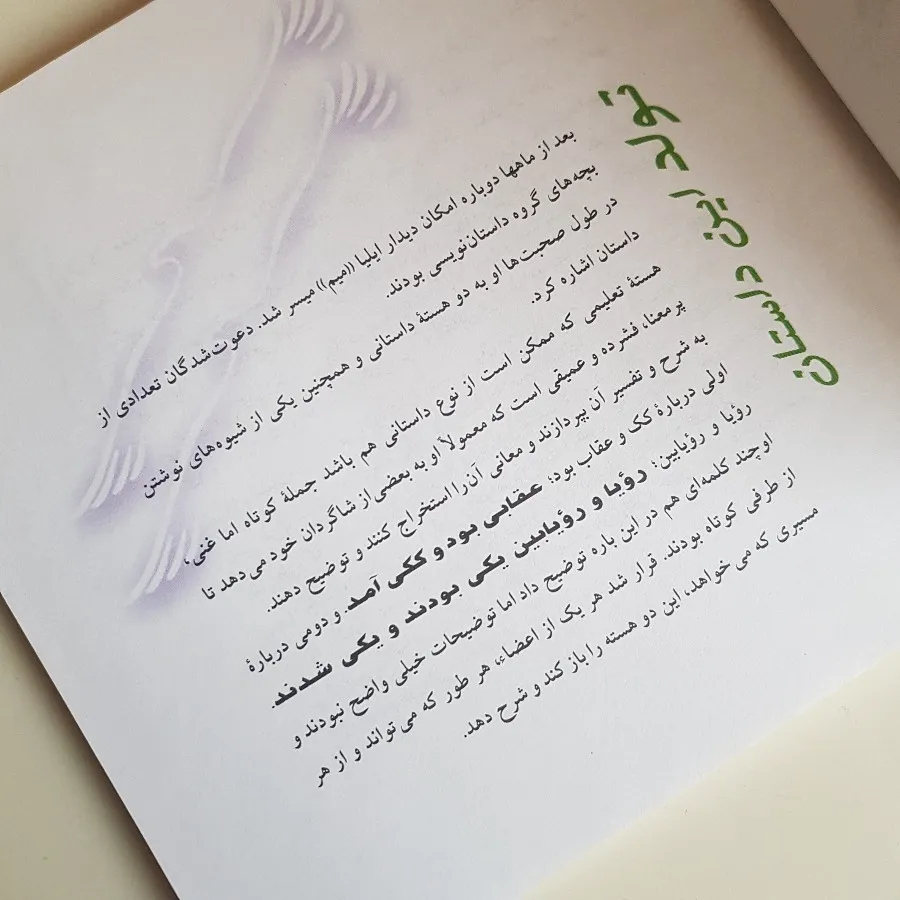 تولد این داستان
بعد از ماهها دوباره امکان دیدار ایلیا «میم» میسر شد. دعوت‌شدگان تعدادی از
بچه‌های گروه داستان‌نویسی بودند.
در طول صحبت‌ها او به دو هستهٔ داستانی و همچنین یکی از شیوه‌های نوشتن
داستان اشاره کرد.
هستهٔ تعلیمی که ممکن است از نوع داستانی هم باشد جملهٔ کوتاه اما غنی،
پرمعنا، فشرده و عمیقی است که معمولاً او به بعضی از شاگردان خود می‌دهد تا
به شرح و تفسیر آن بپردازند و معانی آن را استخراج کنند و توضیح دهند.
اولی دربارهٔ کک و عقاب بود؛ عقابی بود و ککی آمد. و دومی دربارهٔ
رؤیا و رؤیابین؛ رؤیا و رؤیابین یکی بودند و یکی شدند.
او چند کلمه‌ای هم در این باره توضیح داد اما توضیحات خیلی واضح نبودند و
از طرفی کوتاه بودند. قرار شد هر یک از اعضاء، هر طور که می‌تواند و از هر
مسیری که می‌خواهد، این دو هسته را باز کند و شرح دهد.